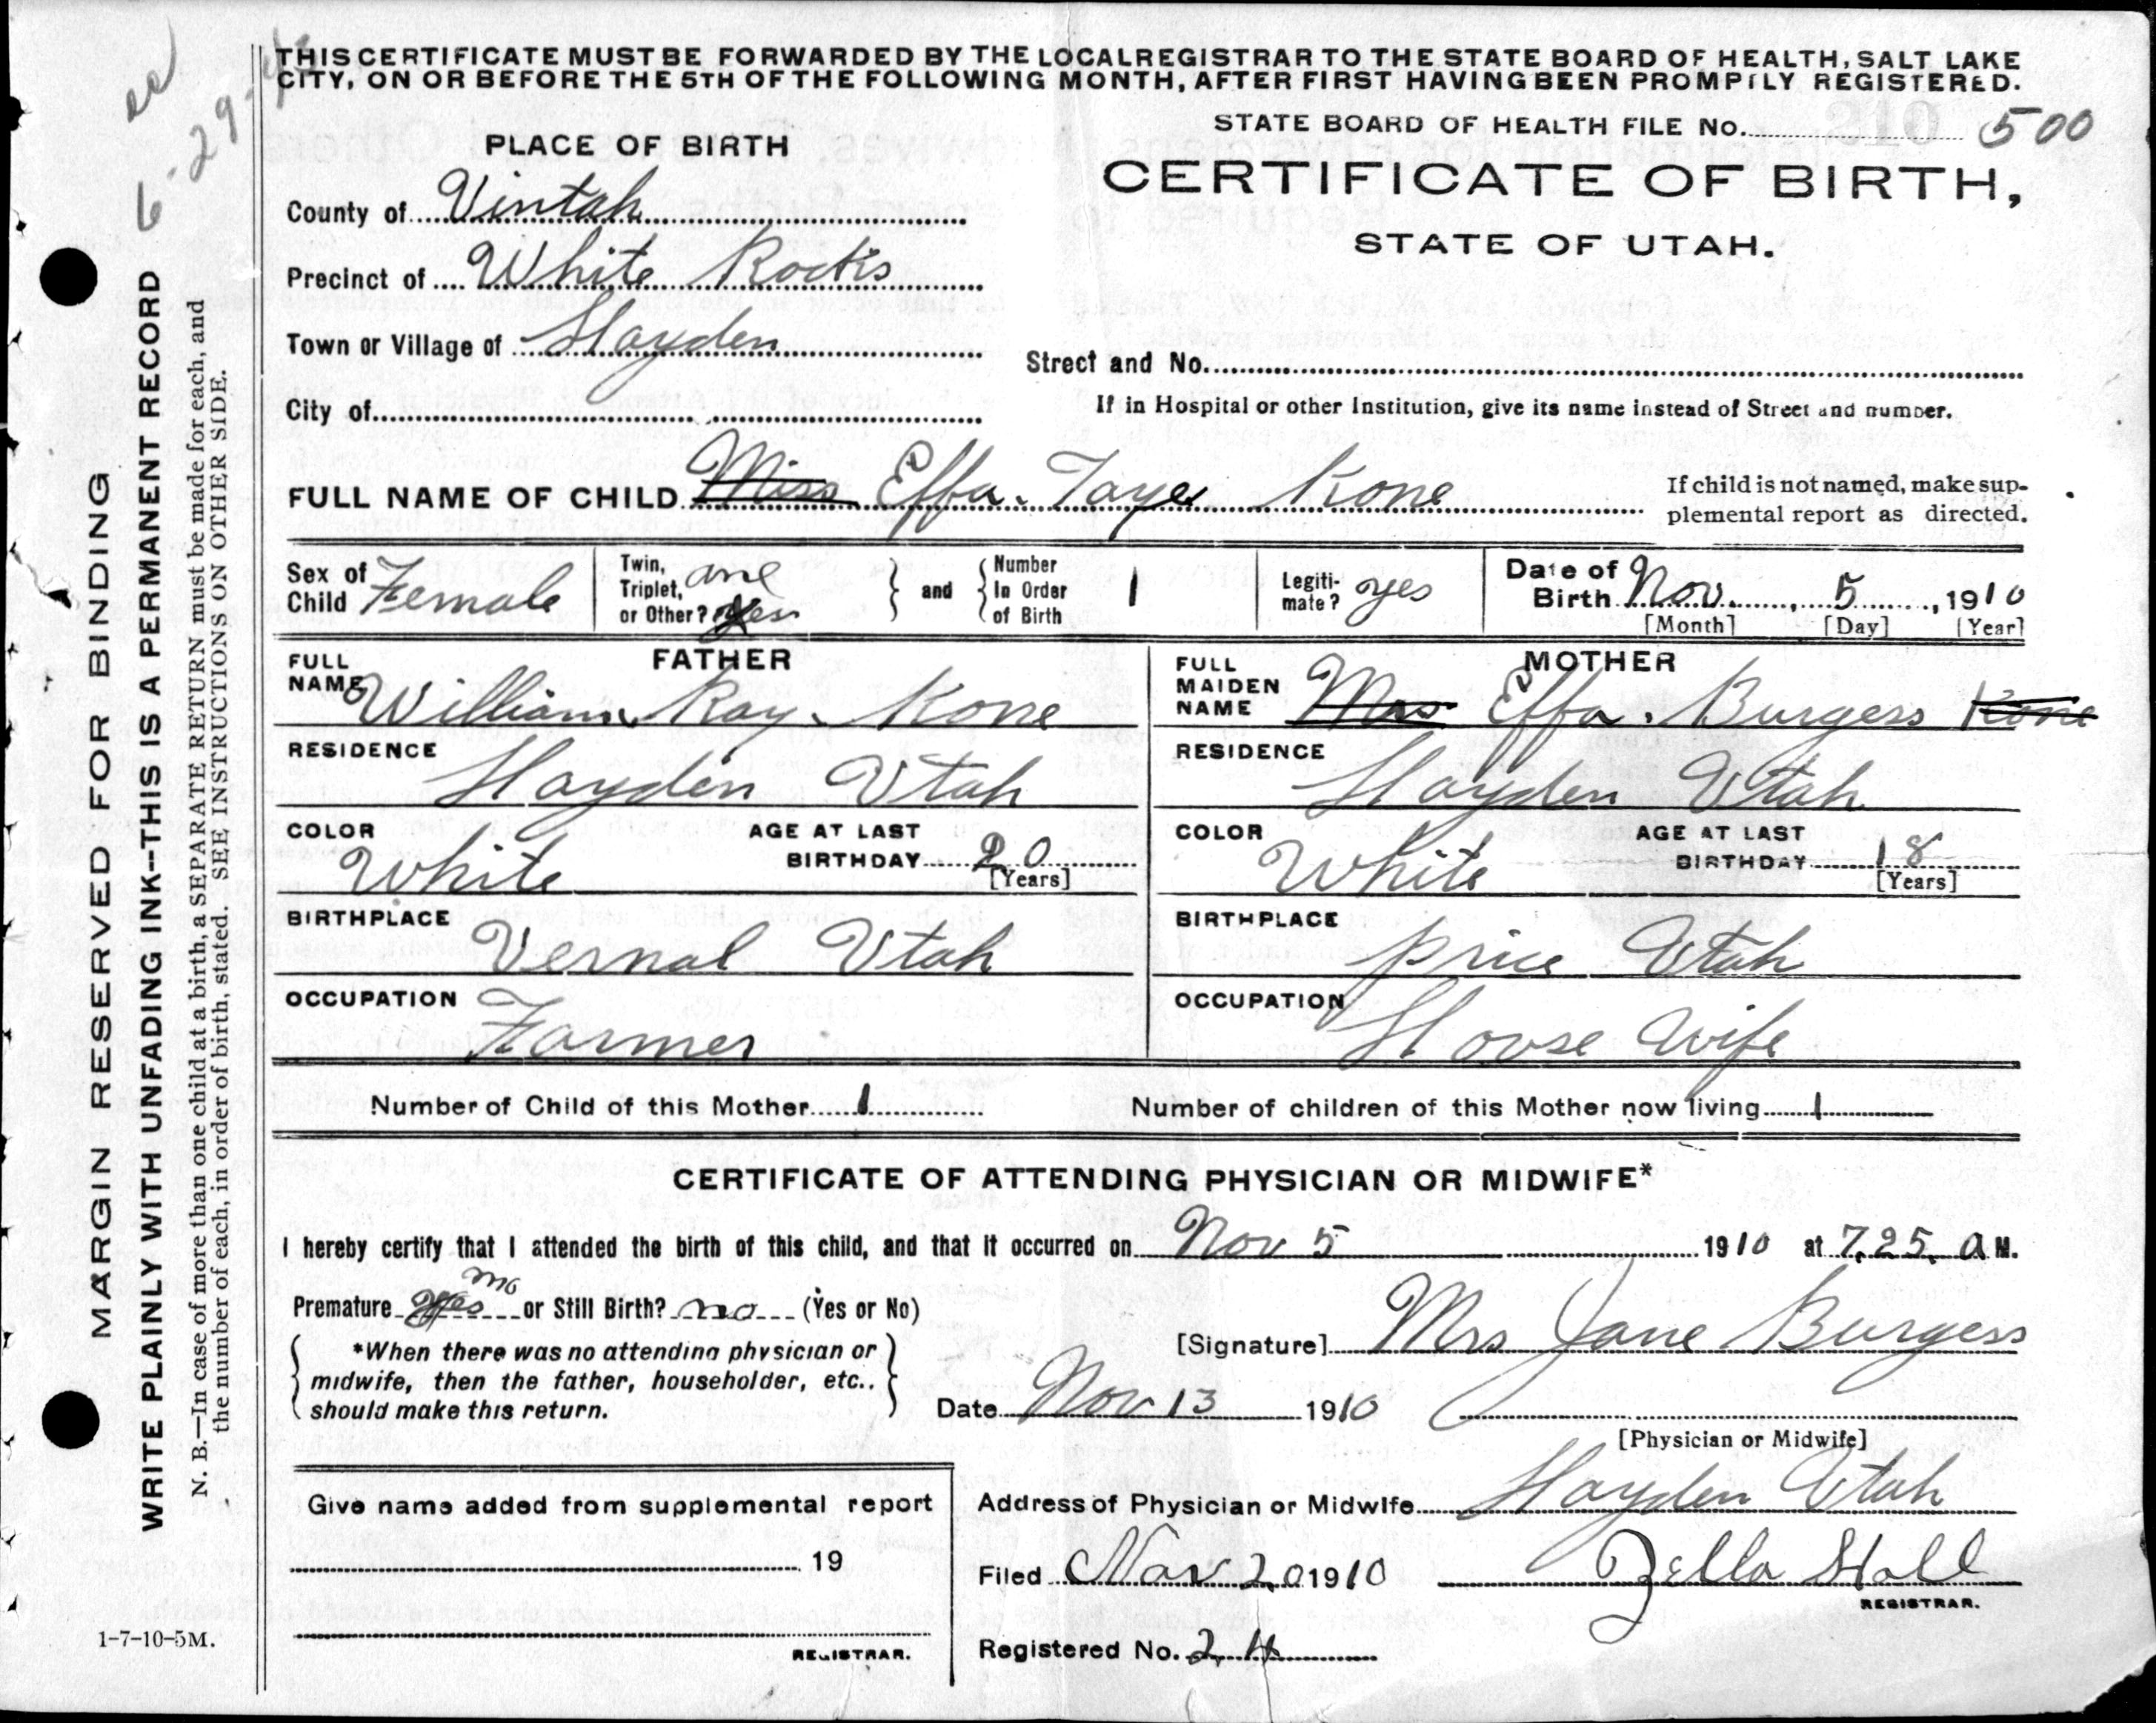 THIS CERTIFICATE MUST BE FORWARDED BY THE LOCAL REGISTRAR TO THE STATE BOARD OF HEALTH, SALT LAKE
CITY, ON OR BEFORE THE 5TH OF THE FOLLOWING MONTH, AFTER FIRST HAVING BEEN PROMPTLY REGISTERED.
STATE BOARD OF HEALTH FILE No. 500
PLACE OF BIRTH
CERTIFICATE OF BIRTH,
STATE OF UTAH.
County of Uintah
Precinct of White Rocks
Town or Village of Hayden
Street and No.
City of
If in Hospital or other Institution, give its name instead of Street and number.
FULL NAME OF CHILD Miss Effa. Faye Kone
If child is not named, make sup-
plemental report as directed.
Sex of Child Female
Twin, Triplet, or Other? one Yes
and
Number In Order of Birth 1
Legiti-mate? yes
Date of Birth Nov. 5, 1910
[Month] [Day] [Year]
FATHER
FULL NAME William Ray Kone
RESIDENCE Hayden Utah
COLOR White
AGE AT LAST BIRTHDAY 20 [Years]
BIRTHPLACE Vernal Utah
OCCUPATION Farmer
MOTHER
FULL MAIDEN NAME Mrs Effa. Burgess Kone
RESIDENCE Hayden Utah
COLOR White
AGE AT LAST BIRTHDAY 18 [Years]
BIRTHPLACE price Utah
OCCUPATION House Wife
Number of Child of this Mother 1
Number of children of this Mother now living 1
CERTIFICATE OF ATTENDING PHYSICIAN OR MIDWIFE*
I hereby certify that I attended the birth of this child, and that it occurred on Nov 5 1910 at 7,25, a M.
Premature Yes no or Still Birth? no (Yes or No)
*When there was no attending physician or
midwife, then the father, householder, etc.,
should make this return.
[Signature] Mrs Jane Burgess
Date Nov 13 1910
[Physician or Midwife]
Give name added from supplemental report
19
REGISTRAR.
Address of Physician or Midwife Hayden Utah
Filed Nov 20 1910
Zella Hall
REGISTRAR.
Registered No. 24
1-7-10-5M.
MARGIN RESERVED FOR BINDING
WRITE PLAINLY WITH UNFADING INK--THIS IS A PERMANENT RECORD
N. B.—In case of more than one child at a birth, a SEPARATE RETURN must be made for each, and
the number of each, in order of birth, stated. SEE INSTRUCTIONS ON OTHER SIDE.